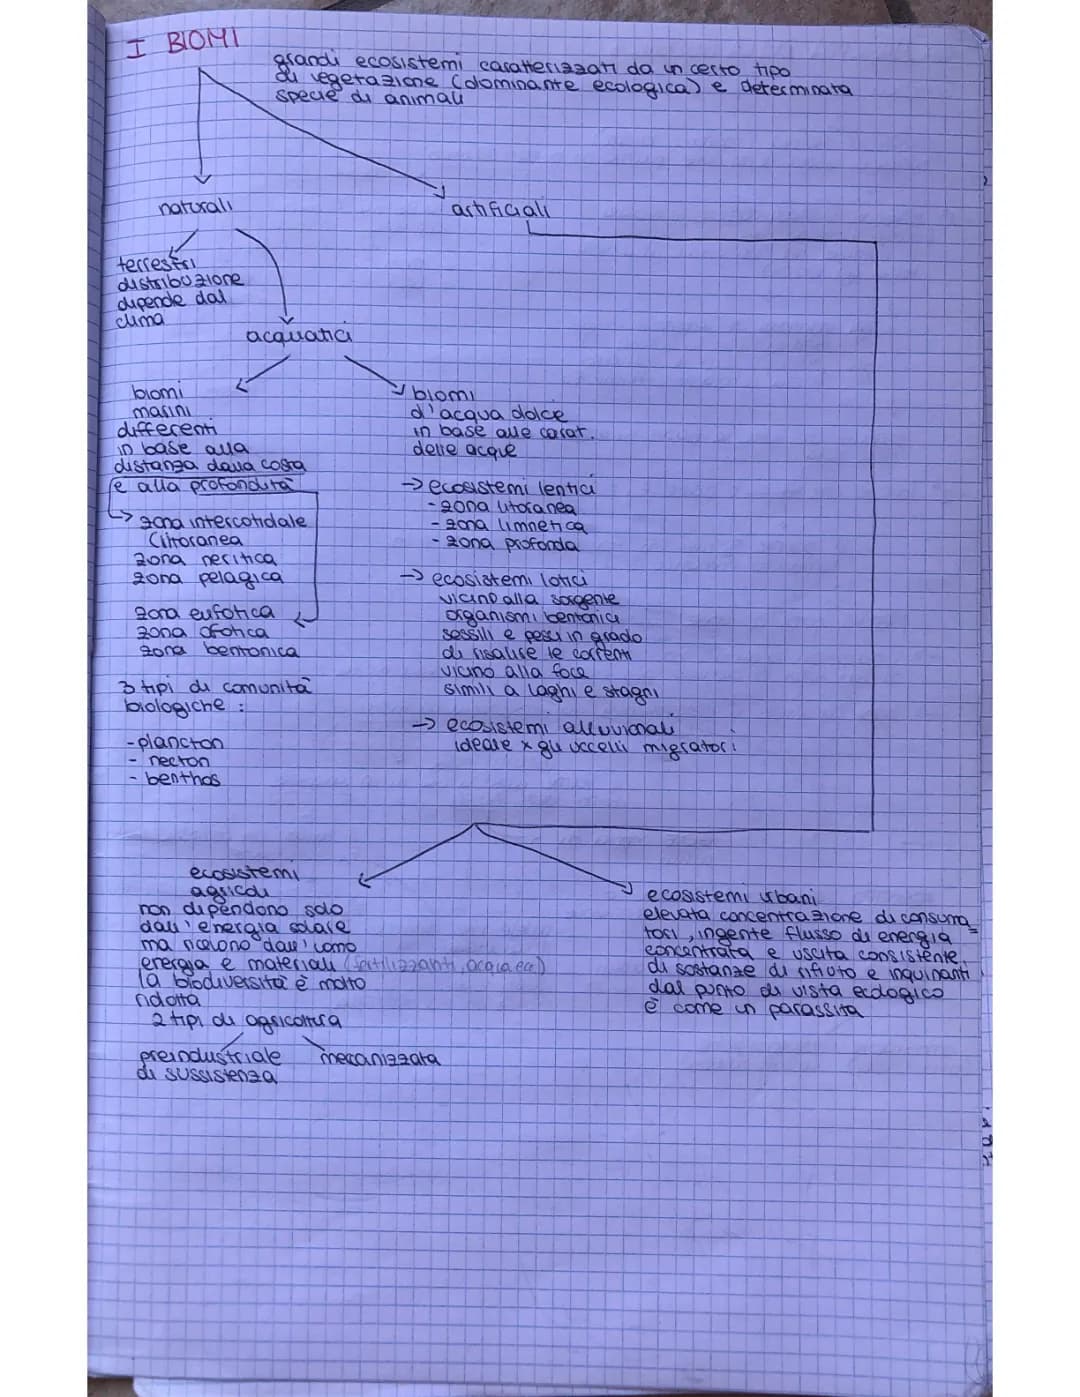 I BIOMI
grandi ecosistemi caratterizzati da un certo tipo
di vegetazione (dominante ecologica) e determinata
specie di animali
naturali
artificiali
terrestri
distribuzione
dipende dal
clima
acquatici
biomi
marini
differenti
in base alla
distanza dalla costa
e alla profondità
→ zona intercotidale
(litoranea
zona neritica
zona pelagica
zona eufotica
zona afotica
zona bentonica
3 tipi di comunità
biologiche :
- plancton
- necton
- benthos
biomi
d'acqua dolce
in base alle carat.
delle acque
→ ecosistemi lentici
- zona litoranea
- zona limnetica
- zona profonda
→ ecosistemi lotici
vicino alla sorgente
organismi bentonici
sessili e pesci in grado
di risalire le correnti
vicino alla foce
simili a laghi e stagni
→ ecosistemi alluvionali
ideale x gli uccelli migratori
ecosistemi
agricoli
non dipendono solo
dall'energia solare
ma ricevono dall'uomo
energia e materiali (fertilizzanti, acqua ec)
la biodiversità è molto
ridotta
2 tipi di agricoltura
preindustriale
di sussistenza
meccanizzata
ecosistemi urbani
elevata concentrazione di consuma_
tori, ingente flusso di energia
concentrata e uscita consistente
di sostanze di rifiuto e inquinanti
dal punto di vista ecologico
è come un parassita